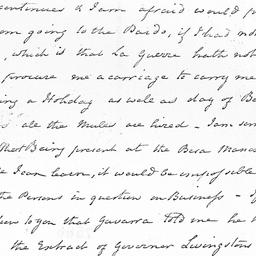 continues & I am afraid would p
om going to the Bardo, if I had not
, which is that La Guerre hath not
procure me a carriage to carry me
ing a Holyday as well as day of Be
all the Mules are hired - I am sor
that Being present at the Besa Mano
I can learn, it would be impossible
the Persons in question on Business -
to you that Gavarra told me he
the Extract of Governor Livingstons